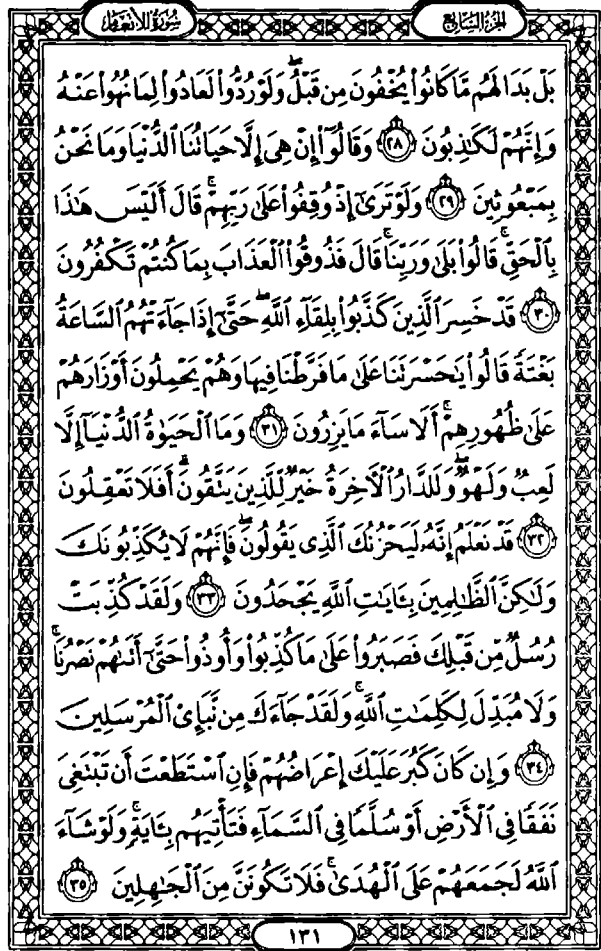 سُورَةُ الأَنْعَام
الجُزْءُ السَّابِع
بَلْ بَدَا لَهُم مَّا كَانُوا۟ يُخْفُونَ مِن قَبْلُ ۖ وَلَوْ رُدُّوا۟ لَعَادُوا۟ لِمَا نُهُوا۟ عَنْهُ
وَإِنَّهُمْ لَكَٰذِبُونَ ٢٨ وَقَالُوٓا۟ إِنْ هِىَ إِلَّا حَيَاتُنَا ٱلدُّنْيَا وَمَا نَحْنُ
بِمَبْعُوثِينَ ٢٩ وَلَوْ تَرَىٰٓ إِذْ وُقِفُوا۟ عَلَىٰ رَبِّهِمْ ۚ قَالَ أَلَيْسَ هَٰذَا
بِٱلْحَقِّ ۚ قَالُوا۟ بَلَىٰ وَرَبِّنَا ۚ قَالَ فَذُوقُوا۟ ٱلْعَذَابَ بِمَا كُنتُمْ تَكْفُرُونَ
٣٠ قَدْ خَسِرَ ٱلَّذِينَ كَذَّبُوا۟ بِلِقَآءِ ٱللَّهِ ۖ حَتَّىٰٓ إِذَا جَآءَتْهُمُ ٱلسَّاعَةُ
بَغْتَةً قَالُوا۟ يَٰحَسْرَتَنَا عَلَىٰ مَا فَرَّطْنَا فِيهَا وَهُمْ يَحْمِلُونَ أَوْزَارَهُمْ
عَلَىٰ ظُهُورِهِمْ ۚ أَلَا سَآءَ مَا يَزِرُونَ ٣١ وَمَا ٱلْحَيَوٰةُ ٱلدُّنْيَآ إِلَّا
لَعِبٌ وَلَهْوٌ ۖ وَلَلدَّارُ ٱلْءَاخِرَةُ خَيْرٌ لِّلَّذِينَ يَتَّقُونَ ۗ أَفَلَا تَعْقِلُونَ
٣٢ قَدْ نَعْلَمُ إِنَّهُۥ لَيَحْزُنُكَ ٱلَّذِى يَقُولُونَ ۖ فَإِنَّهُمْ لَا يُكَذِّبُونَكَ
وَلَٰكِنَّ ٱلظَّٰلِمِينَ بِـَٔايَٰتِ ٱللَّهِ يَجْحَدُونَ ٣٣ وَلَقَدْ كُذِّبَتْ
رُسُلٌ مِّن قَبْلِكَ فَصَبَرُوا۟ عَلَىٰ مَا كُذِّبُوا۟ وَأُوذُوا۟ حَتَّىٰٓ أَتَىٰهُمْ نَصْرُنَا ۚ
وَلَا مُبَدِّلَ لِكَلِمَٰتِ ٱللَّهِ ۚ وَلَقَدْ جَآءَكَ مِن نَّبَإِى۟ ٱلْمُرْسَلِينَ
٣٤ وَإِن كَانَ كَبُرَ عَلَيْكَ إِعْرَاضُهُمْ فَإِنِ ٱسْتَطَعْتَ أَن تَبْتَغِىَ
نَفَقًا فِى ٱلْأَرْضِ أَوْ سُلَّمًا فِى ٱلسَّمَآءِ فَتَأْتِيَهُم بِـَٔايَةٍ ۚ وَلَوْ شَآءَ
ٱللَّهُ لَجَمَعَهُمْ عَلَى ٱلْهُدَىٰ ۚ فَلَا تَكُونَنَّ مِنَ ٱلْجَٰهِلِينَ ٣٥
١٣١